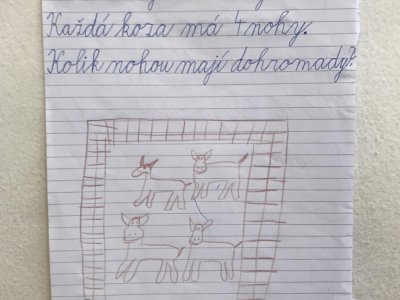 Každá koza má 4 nohy.
Kolik nohou mají dohromady?